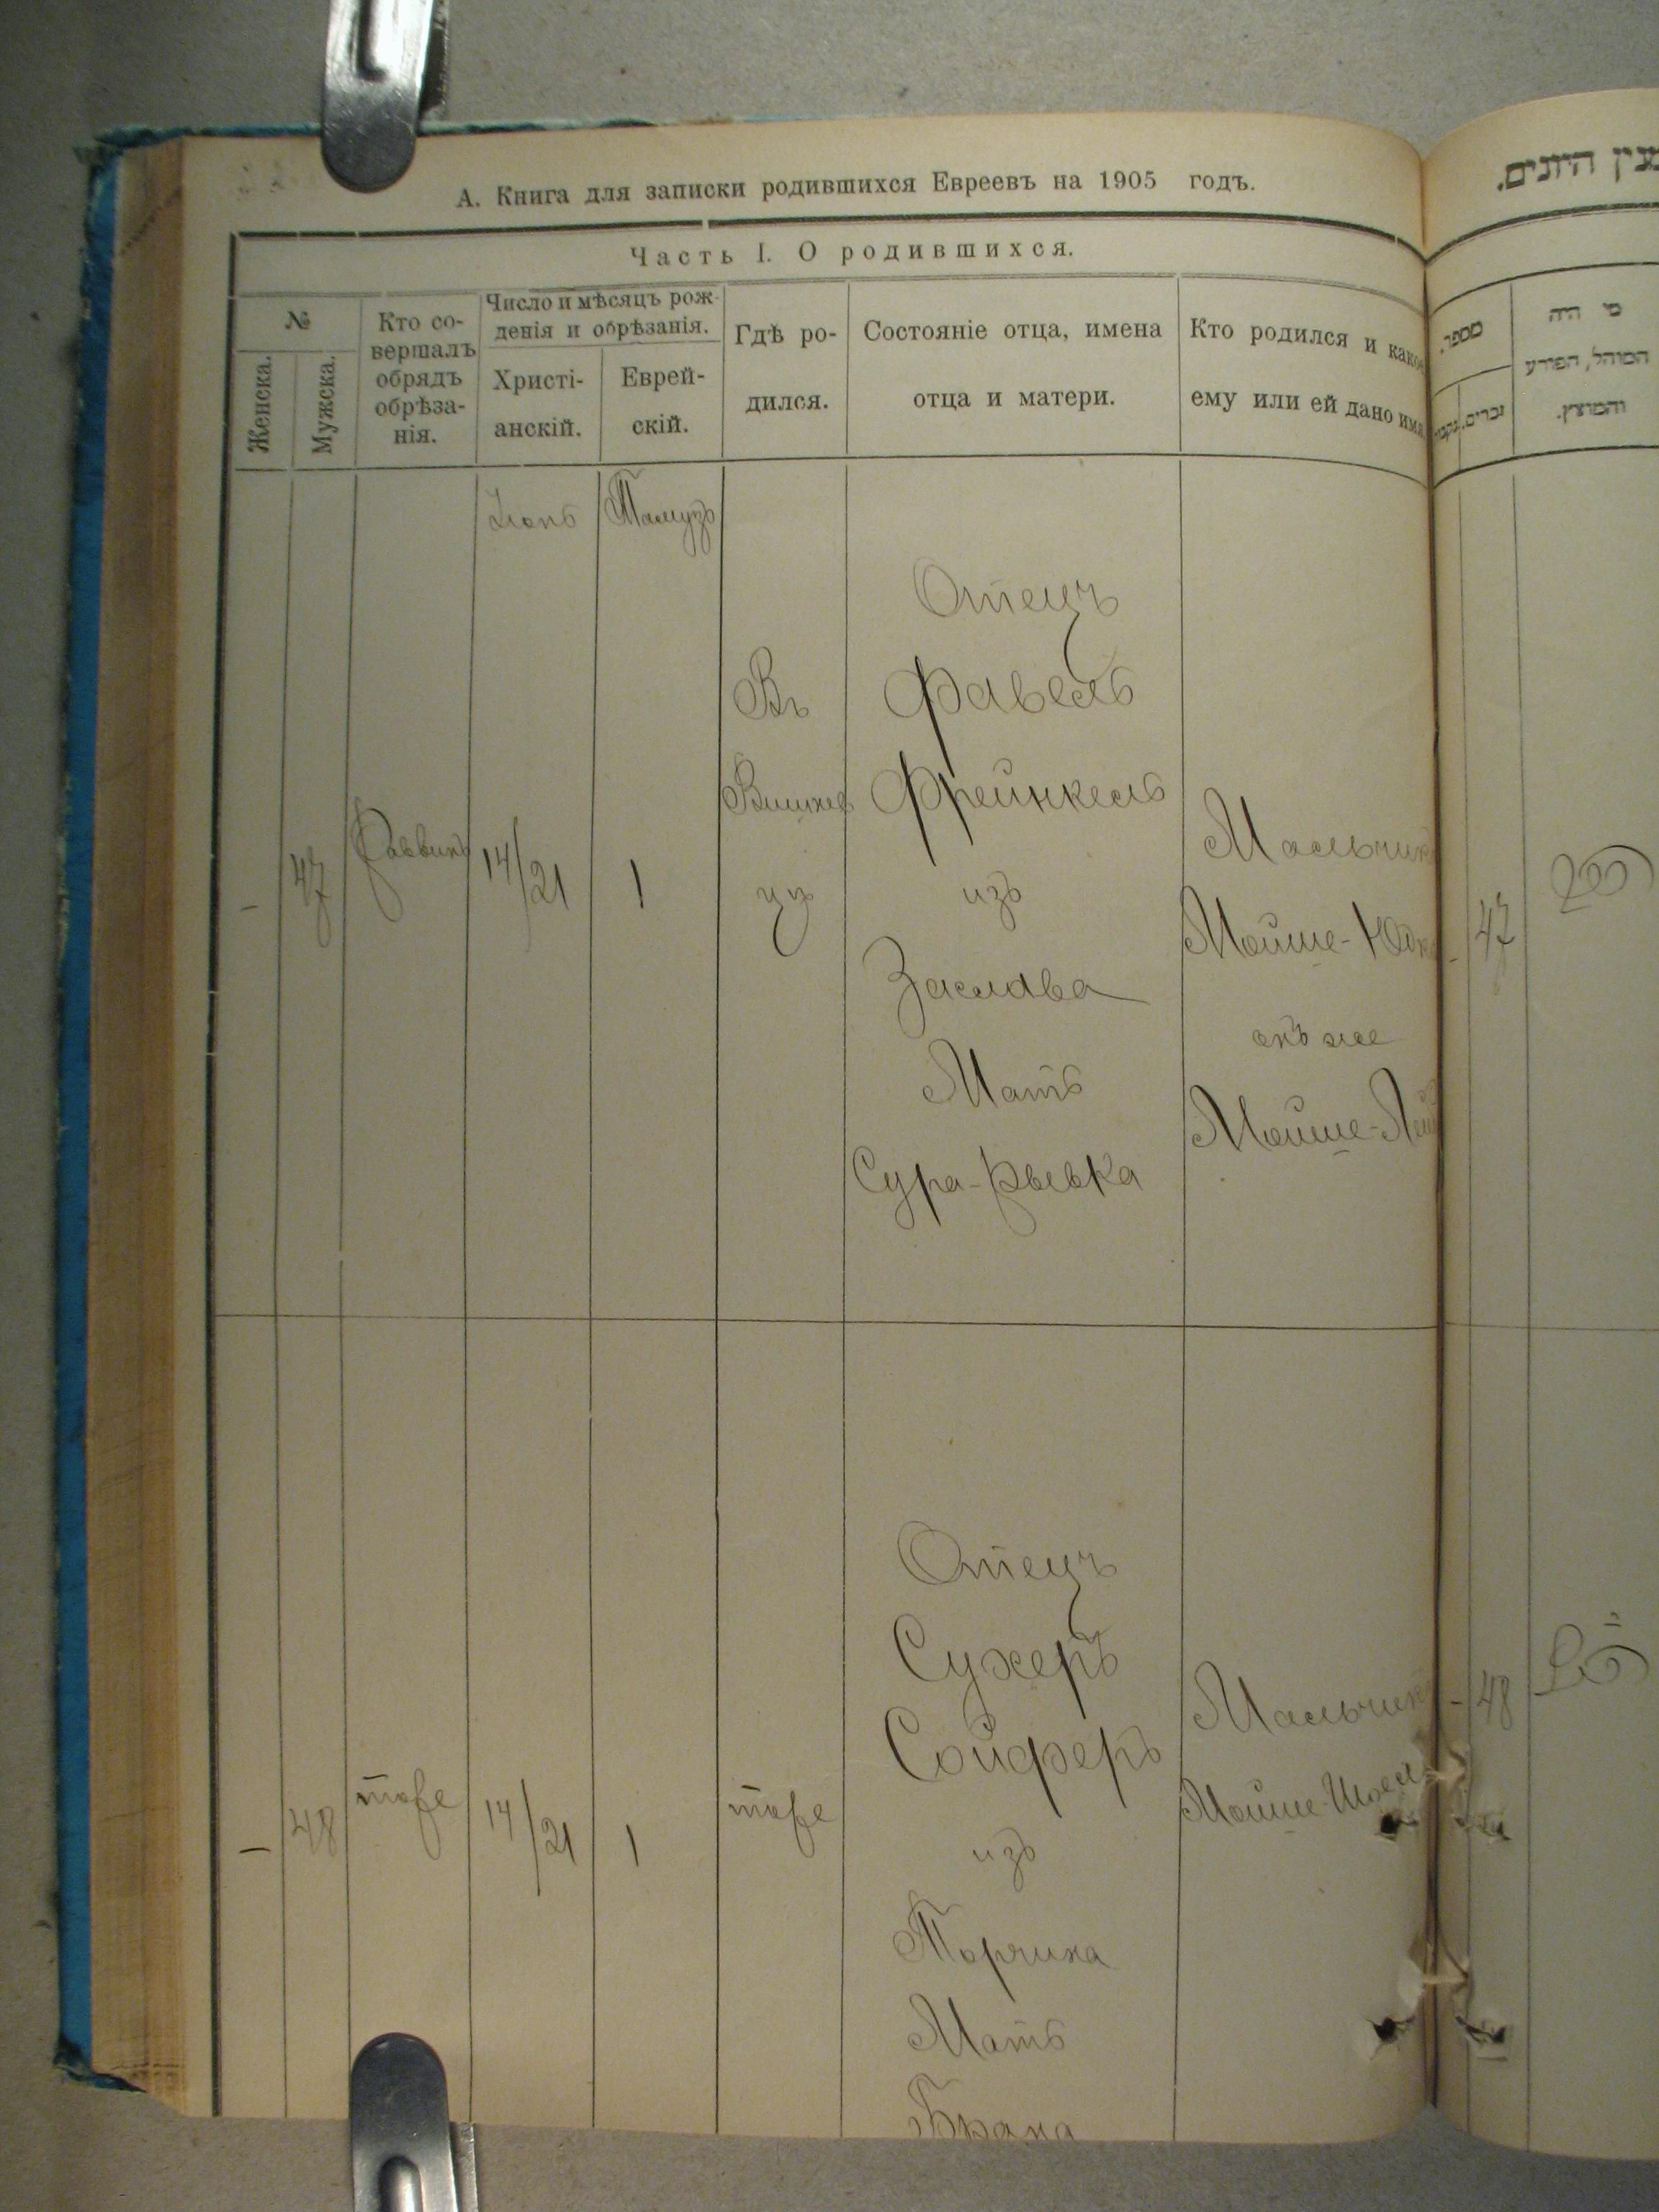 А. Книга для записки родившихся Евреевъ на 1905 годъ.
Часть I. О родившихся.
№
Женска.
Мужска.
Кто со-
вершалъ
обрядъ
обрѣза-
нія.
Число и мѣсяцъ рож-
денія и обрѣзанія.
Христі-
анскій.
Еврей-
скій.
Гдѣ ро-
дился.
Состояніе отца, имена
отца и матери.
Кто родился и како
ему или ей дано имя
Тамузъ
–
47
Раввинъ
14/21
1
Въ
цѣ
Отецъ
Фавель
Фрейнкель
изъ
Заслава
Мать
Сура-Рывка
Мальчикъ
Мойше-Юдк
онъ же
Мойше-Лей
–
48
тоже
14/21
1
тоже
Отецъ
Сухеръ
Сойферъ
изъ
Торчина
Мать
Брана
Мальчикъ
היונים.
מספר.
זכרים.
מי היה
המוהל, הפורע
והמוצץ.
–
47
–
48